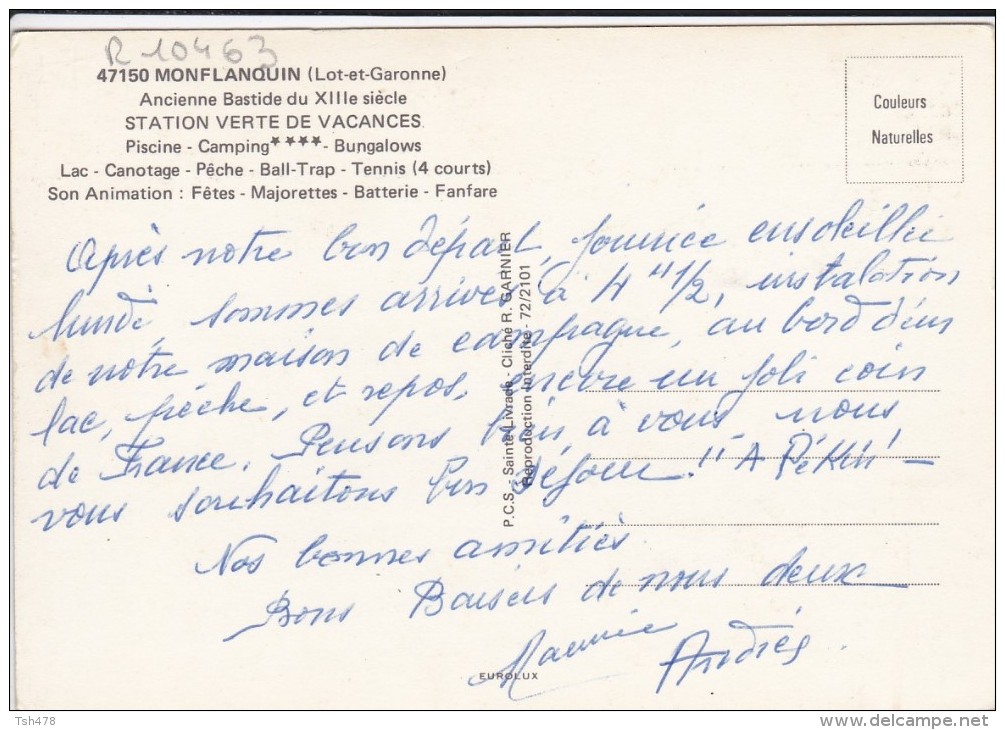 R 10463
47150 MONFLANQUIN (Lot-et-Garonne)
Ancienne Bastide du XIIIe siècle
STATION VERTE DE VACANCES
Piscine - Camping**** - Bungalows
Lac - Canotage - Pêche - Ball-Trap - Tennis (4 courts)
Son Animation : Fêtes - Majorettes - Batterie - Fanfare
Couleurs
Naturelles
Après notre bon départ, journée ensoleillée
lundi, sommes arrivés à 4 H 1/2, instalation
de notre maison de campagne, au bord d'un
lac, pêche, et repos, encore un joli coin
de France. Pensons bien à vous nous
vous souhaitons bon séjour "A Pékin" -
Nos bonnes amitiés
Bons Baisers de nous deux
Maurice Andrée
P.C.S - Sainte-Livrade - Cliché R. GARNIER
Reproduction Interdite - 72/2101
EUROLUX
Tsh478
www.delcampe.net